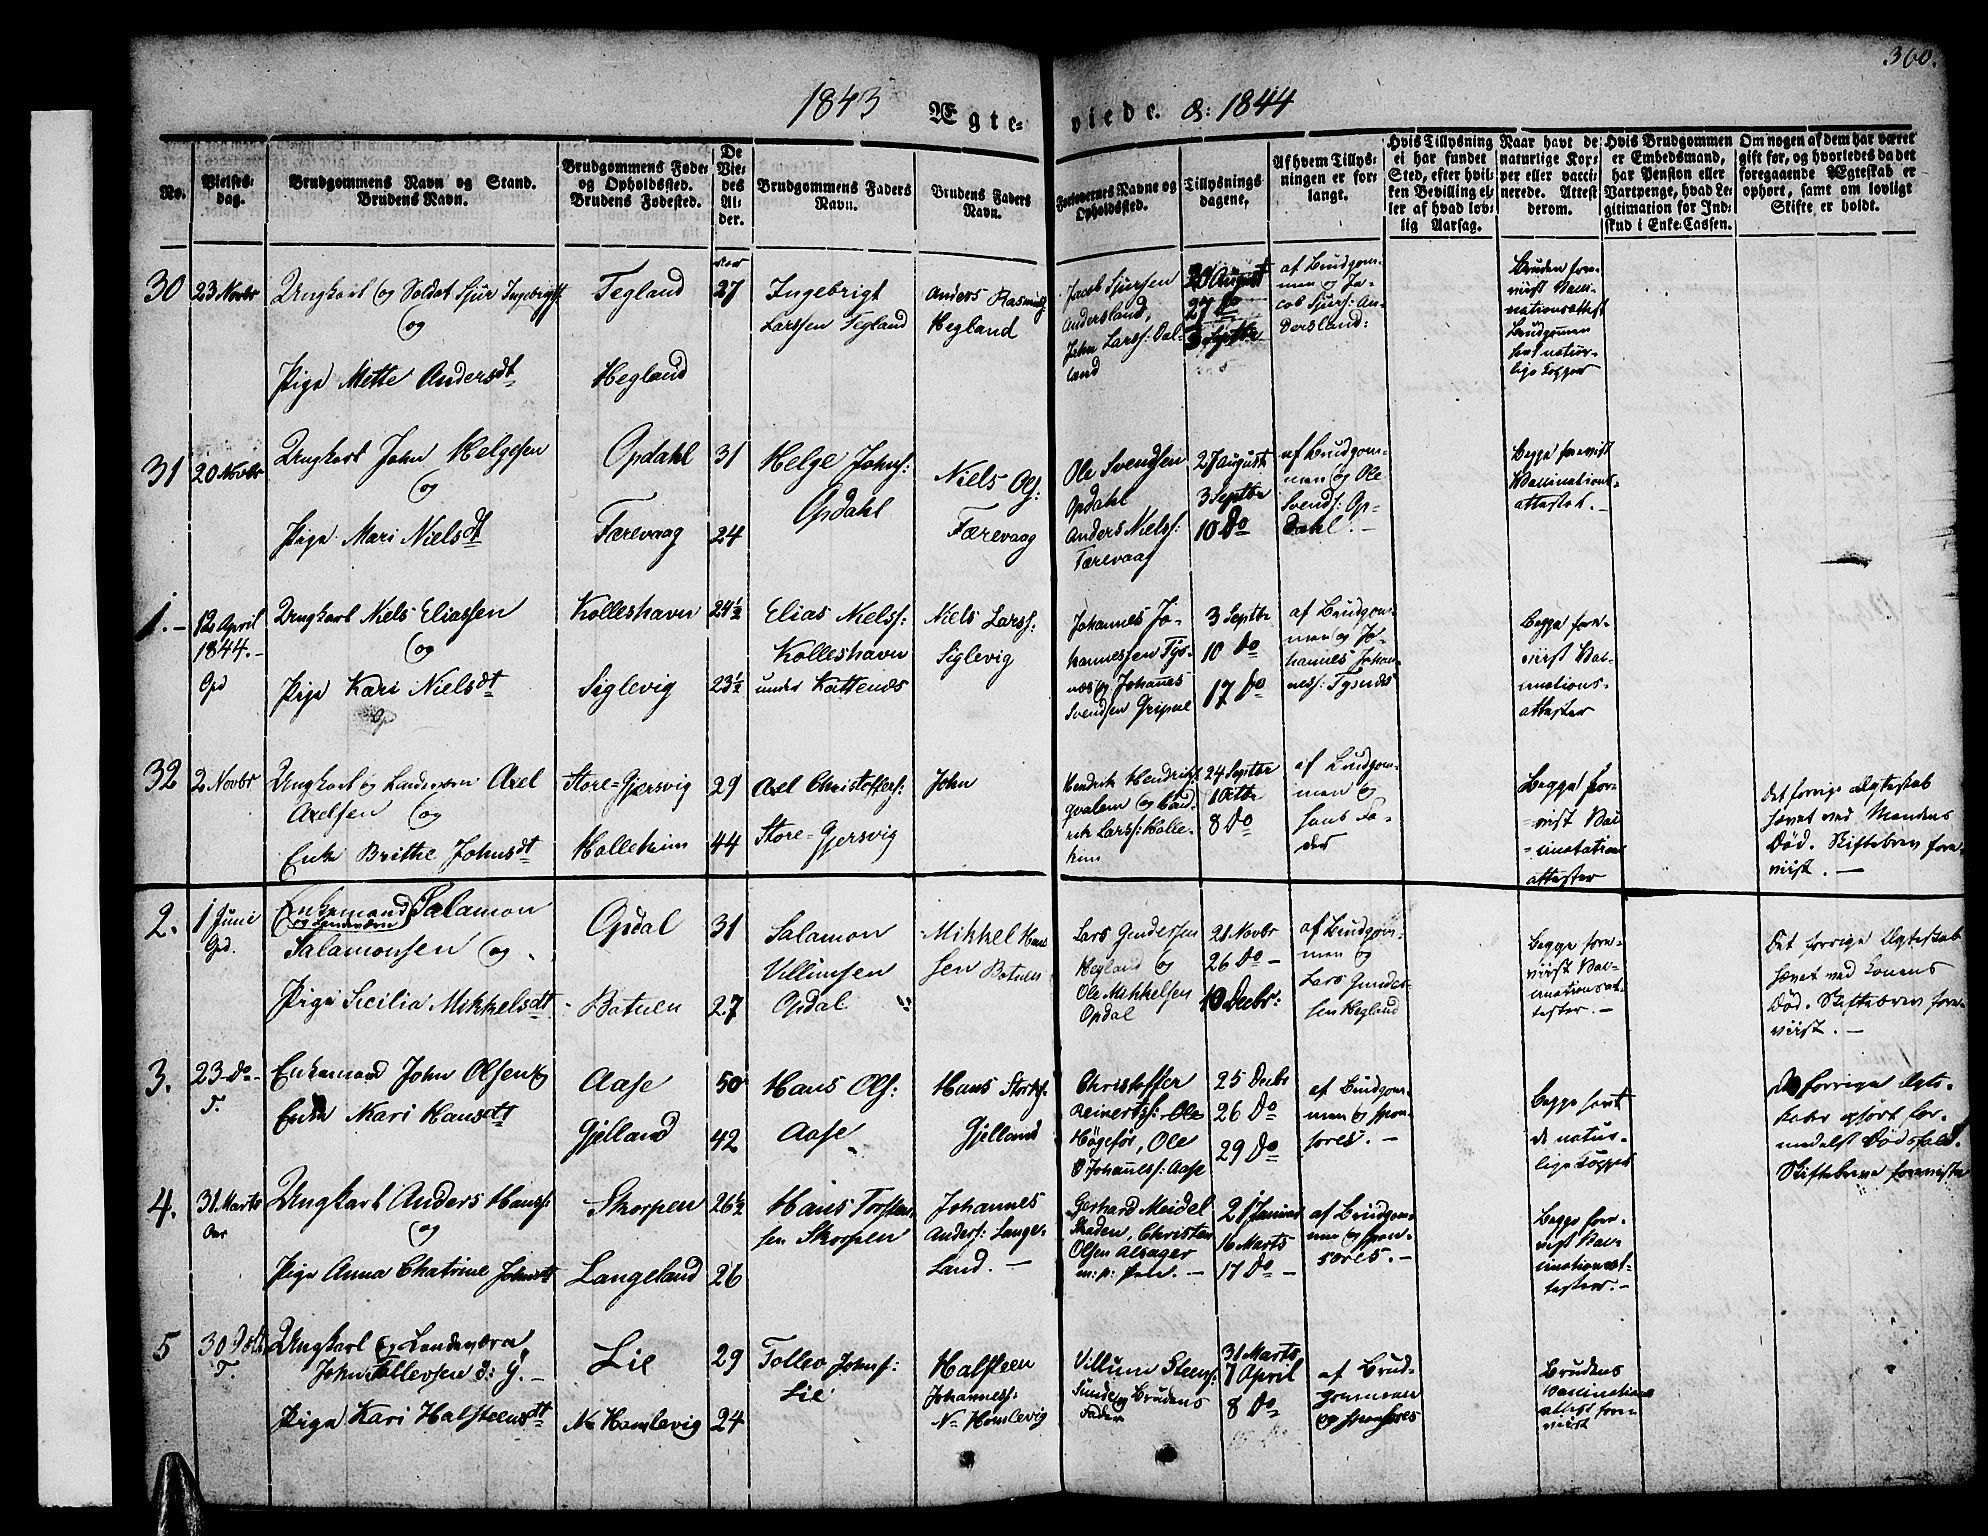 360.
1843 Ægte- viede. & 1844
No.
Vielses-
dag.
Brudgommens Navn og Stand.
Brudens Navn.
Brudgommens Føde-
og Opholdssted.
Brudens Fødested.
De
Vie-
des
Al-
der.
Brudgommens Faders
Navn.
Brudens Faders
Navn.
Forlovernes Navne og
Opholdssted.
Tillysnings
dagene,
Af hvem Tillys-
ningen er for-
langt.
Hvis Tillysning
ei har fundet
Sted, efter hvil-
ken Bevilling el-
ler af hvad lov-
lig Aarsag.
Naar havt de
naturlige Kop-
per eller vacci-
nerede. Attest
derom.
Hvis Brudgommen
er Embedsmand,
har Pension eller
Vartpenge, hvad Le-
gitimation for Ind-
skud i Enke-Cassen.
Om nogen af dem har været
gift før, og hvorledes da det
foregaaende Ægteskab er
ophørt, samt om lovligt
Skifte er holdt.
30
23 Novbr
Ungkarl og Soldat Sjur Ingebrigts
og
Pige Mette Andersdt
Tegland
Hegland
27
Ingebrigt
Larssen Tegland
Anders Rasmus
Hegland
Jacob Sjursen
Andersland,
John Larss: Dal-
land
20 August
27 Do
3 Septbr
af Brudgom-
men og Ja-
cob Sjurs: An-
dersland:
Bruden fore-
viist Vacci-
nationsattest
Brudgommen
havt natur-
lige Kopper
31
20 Novbr
Ungkarl John Helgesen
og
Pige Mari Nielsdt
Opdahl
Færevaag
31
24
Helge Johns:
Opdahl
Niels Ols:
Færevaag
Ole Svendsen
Opdahl
Anders Niels:
Færevaag
27 August
3 Septbr
10 Do
af Brudgom-
men og Ole
Svends: Op-
dahl. -
Begge foreviist
Vaccinations-
attester. -
1. -
12 April
1844. -
Opd
Ungkarl Niels Eliassen
og
Pige Kari Nielsdt
Kolleshavn
Siglevig
24½
23½
Elias Nielss:
Kolleshavn
under Kattenæs
Niels Larss:
Siglevig
Johannes Jo-
hannessen Tys-
næs og Johannes
Svendsen Gripne
3 Septbr
10 Do
17 Do
af Brudgom-
men og Jo-
hannes Johan-
ness: Tysnæs
Begge fore-
viist Vac-
cinations-
attester
32
2 Novbr
Ungkarl og Landeværn Axel
Axelsen og
Enke Brithe Johnsdt
Store-Gjersvig
Halleheim
29
44
Axel Christoffers:
Store-Gjersvig
John
Hendrik Hendriks:
Larss: Halle-
him
24 Septbr
1 Octbr
8 Do
af Brudgom-
men og
hans Fa-
der
Begge fore-
viist Vac-
cination
attester
Det forrige Ægteskab
hævet ved Mandens
Død. Skiftebrev fore-
viist. -
2.
1 Juni
Opd.
Enkemand Salamon
og Landeværn
Salamonsen og
Pige Sicilia Mikkelsdt
Opdal
Batuen
31
27
Salamon
Villumsen
Opdal
Mikkel Hans
sen Batuen
Lars Gundersen
Hegland og
Ole Mikkelsen
Opdal
21 Novbr
26 Do -
10 Decbr:
af Brudgom-
men og
Lars Gunder-
sen Hegland
Begge fore-
viist Vac-
cinationsat-
tester. -
Det forrige Ægteskab
hævet ved Konens
Død. Skiftebrev fore-
viist. -
3.
23 Do -
T.
Enkemand John Olsen og
Enke Mari Hansdt
Aase
Gjelland
50
42
Hans Ols:
Aase
Hans
Gjelland
Christoffer
Reinertss: Ole
Høgefor, Ole
Johanness: Aase
25 Decbr
26 Do
29 Do
af Brudgom-
men og spon-
sores. -
Begge havt
de natur-
lige Kopper
De forrige Ægte-
skaber ophørt for-
medelst Dødsfald.
Skiftebreve foreviste
4.
31 Marts
Ungkarl Anders Hanss:
og
Pige Anna Chatrine Johansdt
Skorpen
Langeland
26½
26
Hans Torsten-
sen Skorpen
Johannes
Anders: Lange-
land. -
Gerhard Meidel
Skaden, Christen
Olsen Alsager
21 Januar
16 Marts
17 Do -
af Brudgom-
men og spon-
sores. -
Begge fore-
viist Vac-
cinationsat-
tester. -
5
30
T.
Ungkarl og Landeværn
John Tollevsen d: y. -
Pige Kari Halsteensdt
Lie
N. Hamlevig
29
24
Tollev Johns:
Lie
Halsteen
Johanness:
N. Hamlevig
Villum Steens:
Sunde og Brudens
Fader
31 Marts
7 April
8 Do
af Brud-
gommen
og sponsores
Brudens
Vaccinations
attest fore-
viist